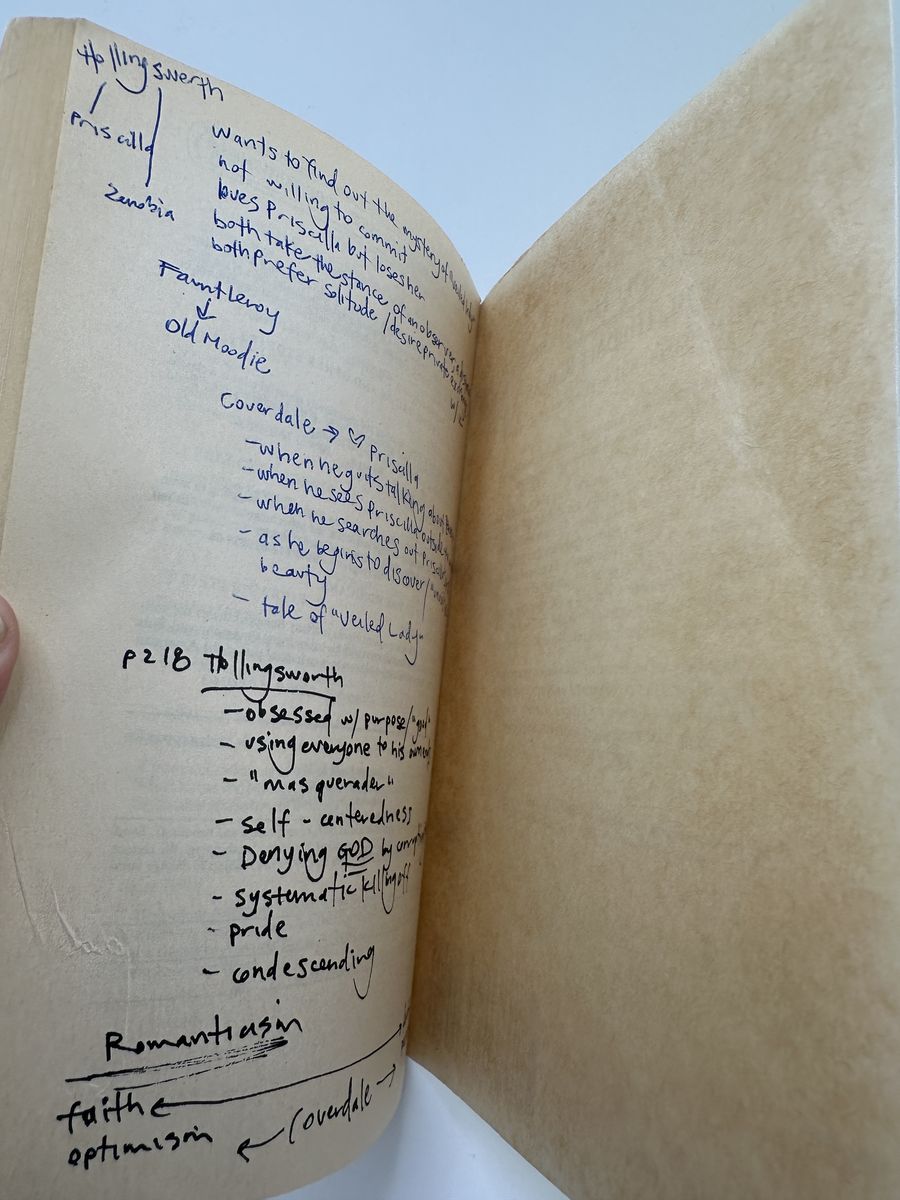 Hollingswerth
Priscilla
Zenobia
Wants to find out the mystery of
not willing to commit
loves Priscilla but loses her
both take the stance of an observer,
both prefer solitude / desire private
w/
Fauntleroy
↓
Old Moodie
Coverdale → ♡ Priscilla
- when he quits talking about
- when he sees Priscilla outside
- when he searches out
- as he begins to discover /
beauty
- tale of "Veiled Lady"
p218 Hollingsworth
- obsessed w/ purpose/"goal"
- using everyone to his own
- "masquerader"
- self-centeredness
- Denying GOD by
- systematic killing off
- pride
- condescending
Romanticism
faith ←
optimism ← Coverdale →